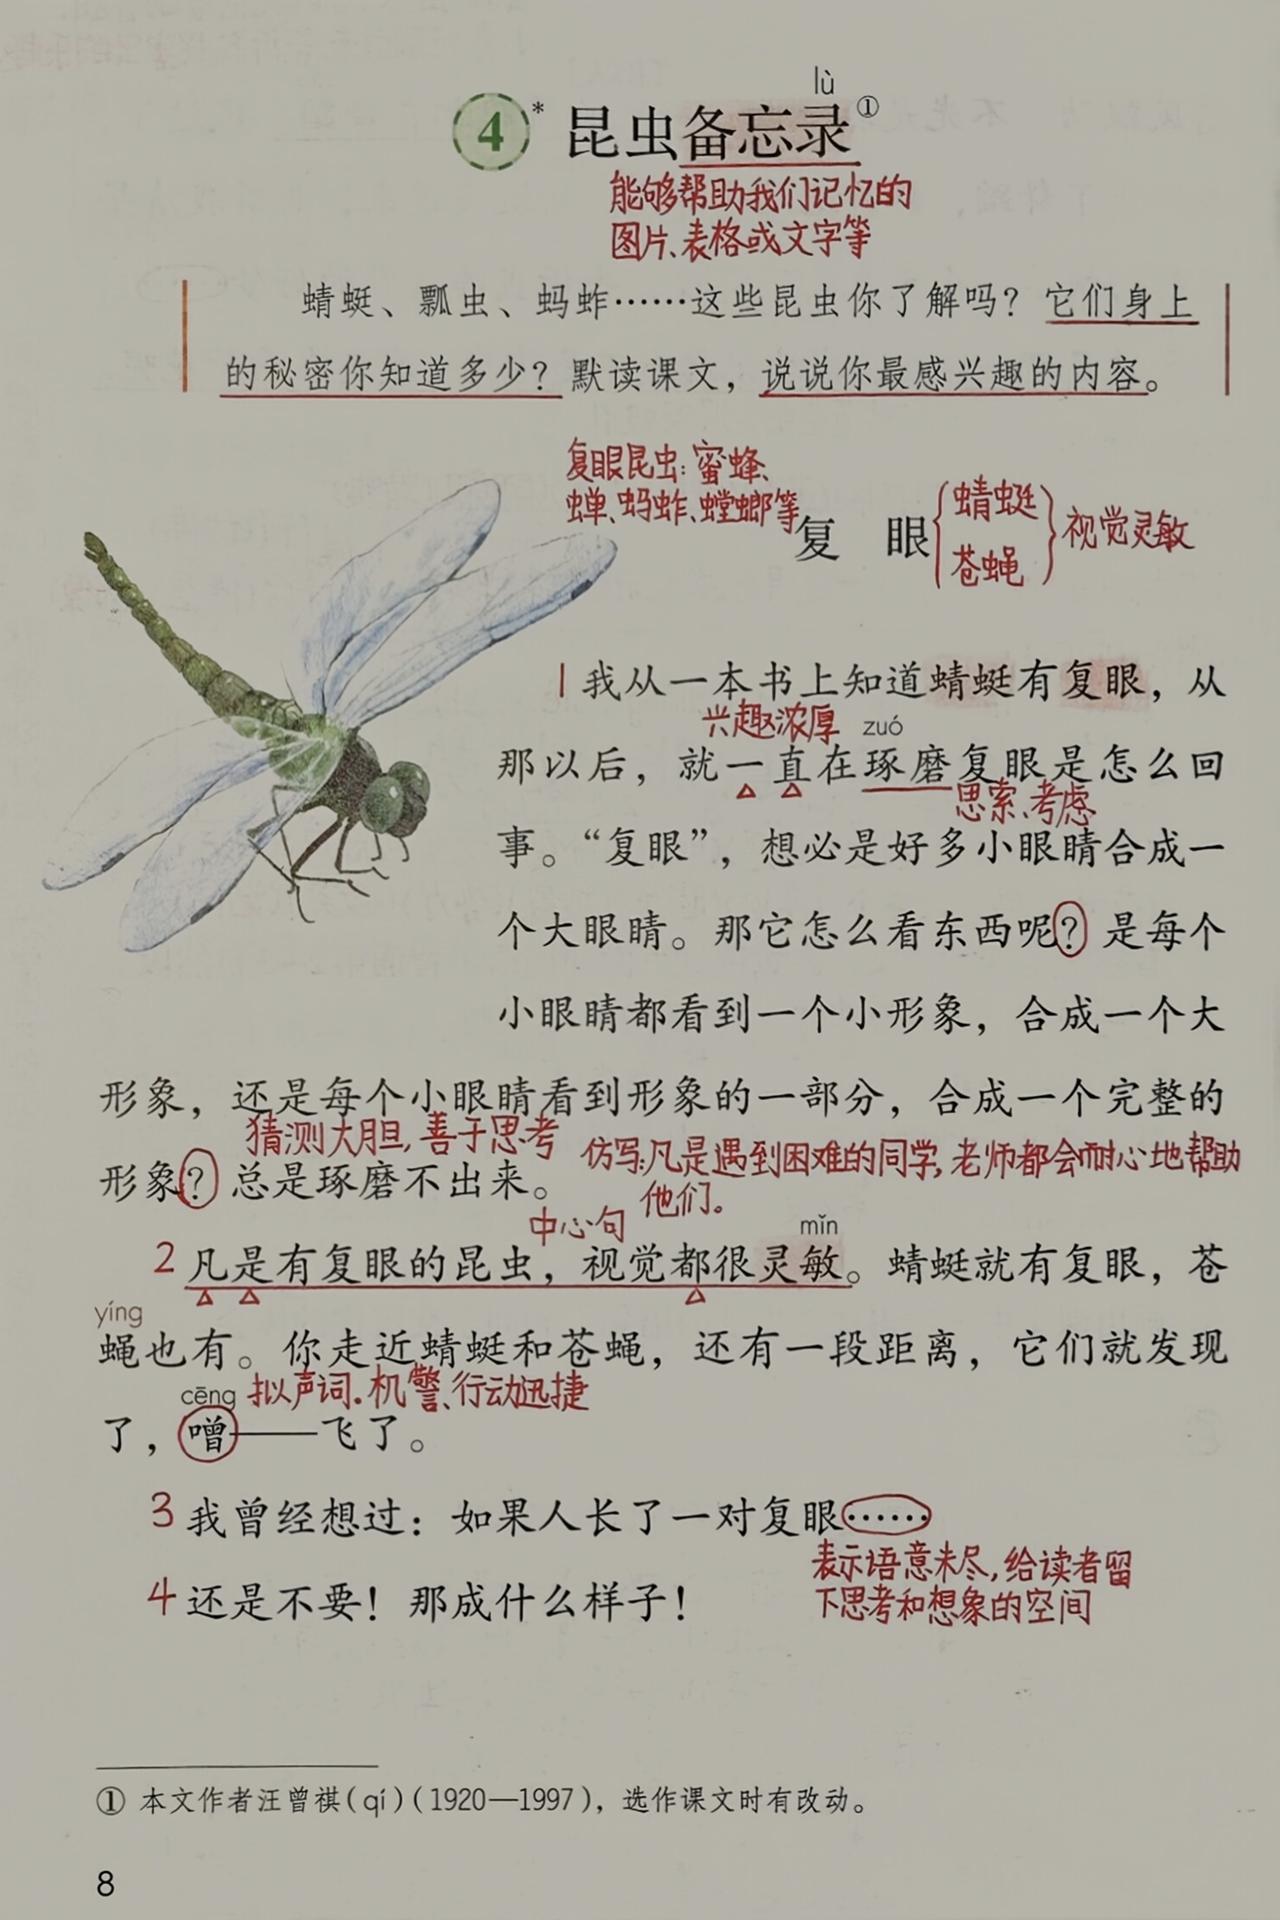 lù
4* 昆虫备忘录①
能够帮助我们记忆的
图片、表格或文字等
蜻蜓、瓢虫、蚂蚱……这些昆虫你了解吗？它们身上
的秘密你知道多少？默读课文，说说你最感兴趣的内容。
复眼昆虫：蜜蜂、
蝉、蚂蚱、螳螂等
复 眼
蜻蜓
苍蝇
视觉灵敏
1 我从一本书上知道蜻蜓有复眼，从
兴趣浓厚 zuó
那以后，就一直在琢磨复眼是怎么回
思索、考虑
事。“复眼”，想必是好多小眼睛合成一
个大眼睛。那它怎么看东西呢？是每个
小眼睛都看到一个小形象，合成一个大
形象，还是每个小眼睛看到形象的一部分，合成一个完整的
猜测大胆，善于思考
仿写：凡是遇到困难的同学，老师都会耐心地帮助
他们。
形象？总是琢磨不出来。
中心句 mǐn
2 凡是有复眼的昆虫，视觉都很灵敏。蜻蜓就有复眼，苍
yíng
蝇也有。你走近蜻蜓和苍蝇，还有一段距离，它们就发现
cēng 拟声词。机警、行动迅捷
了，噌——飞了。
3 我曾经想过：如果人长了一对复眼……
表示语意未尽，给读者留
下思考和想象的空间
4 还是不要！那成什么样子！
① 本文作者汪曾祺(qí)(1920—1997)，选作课文时有改动。
8